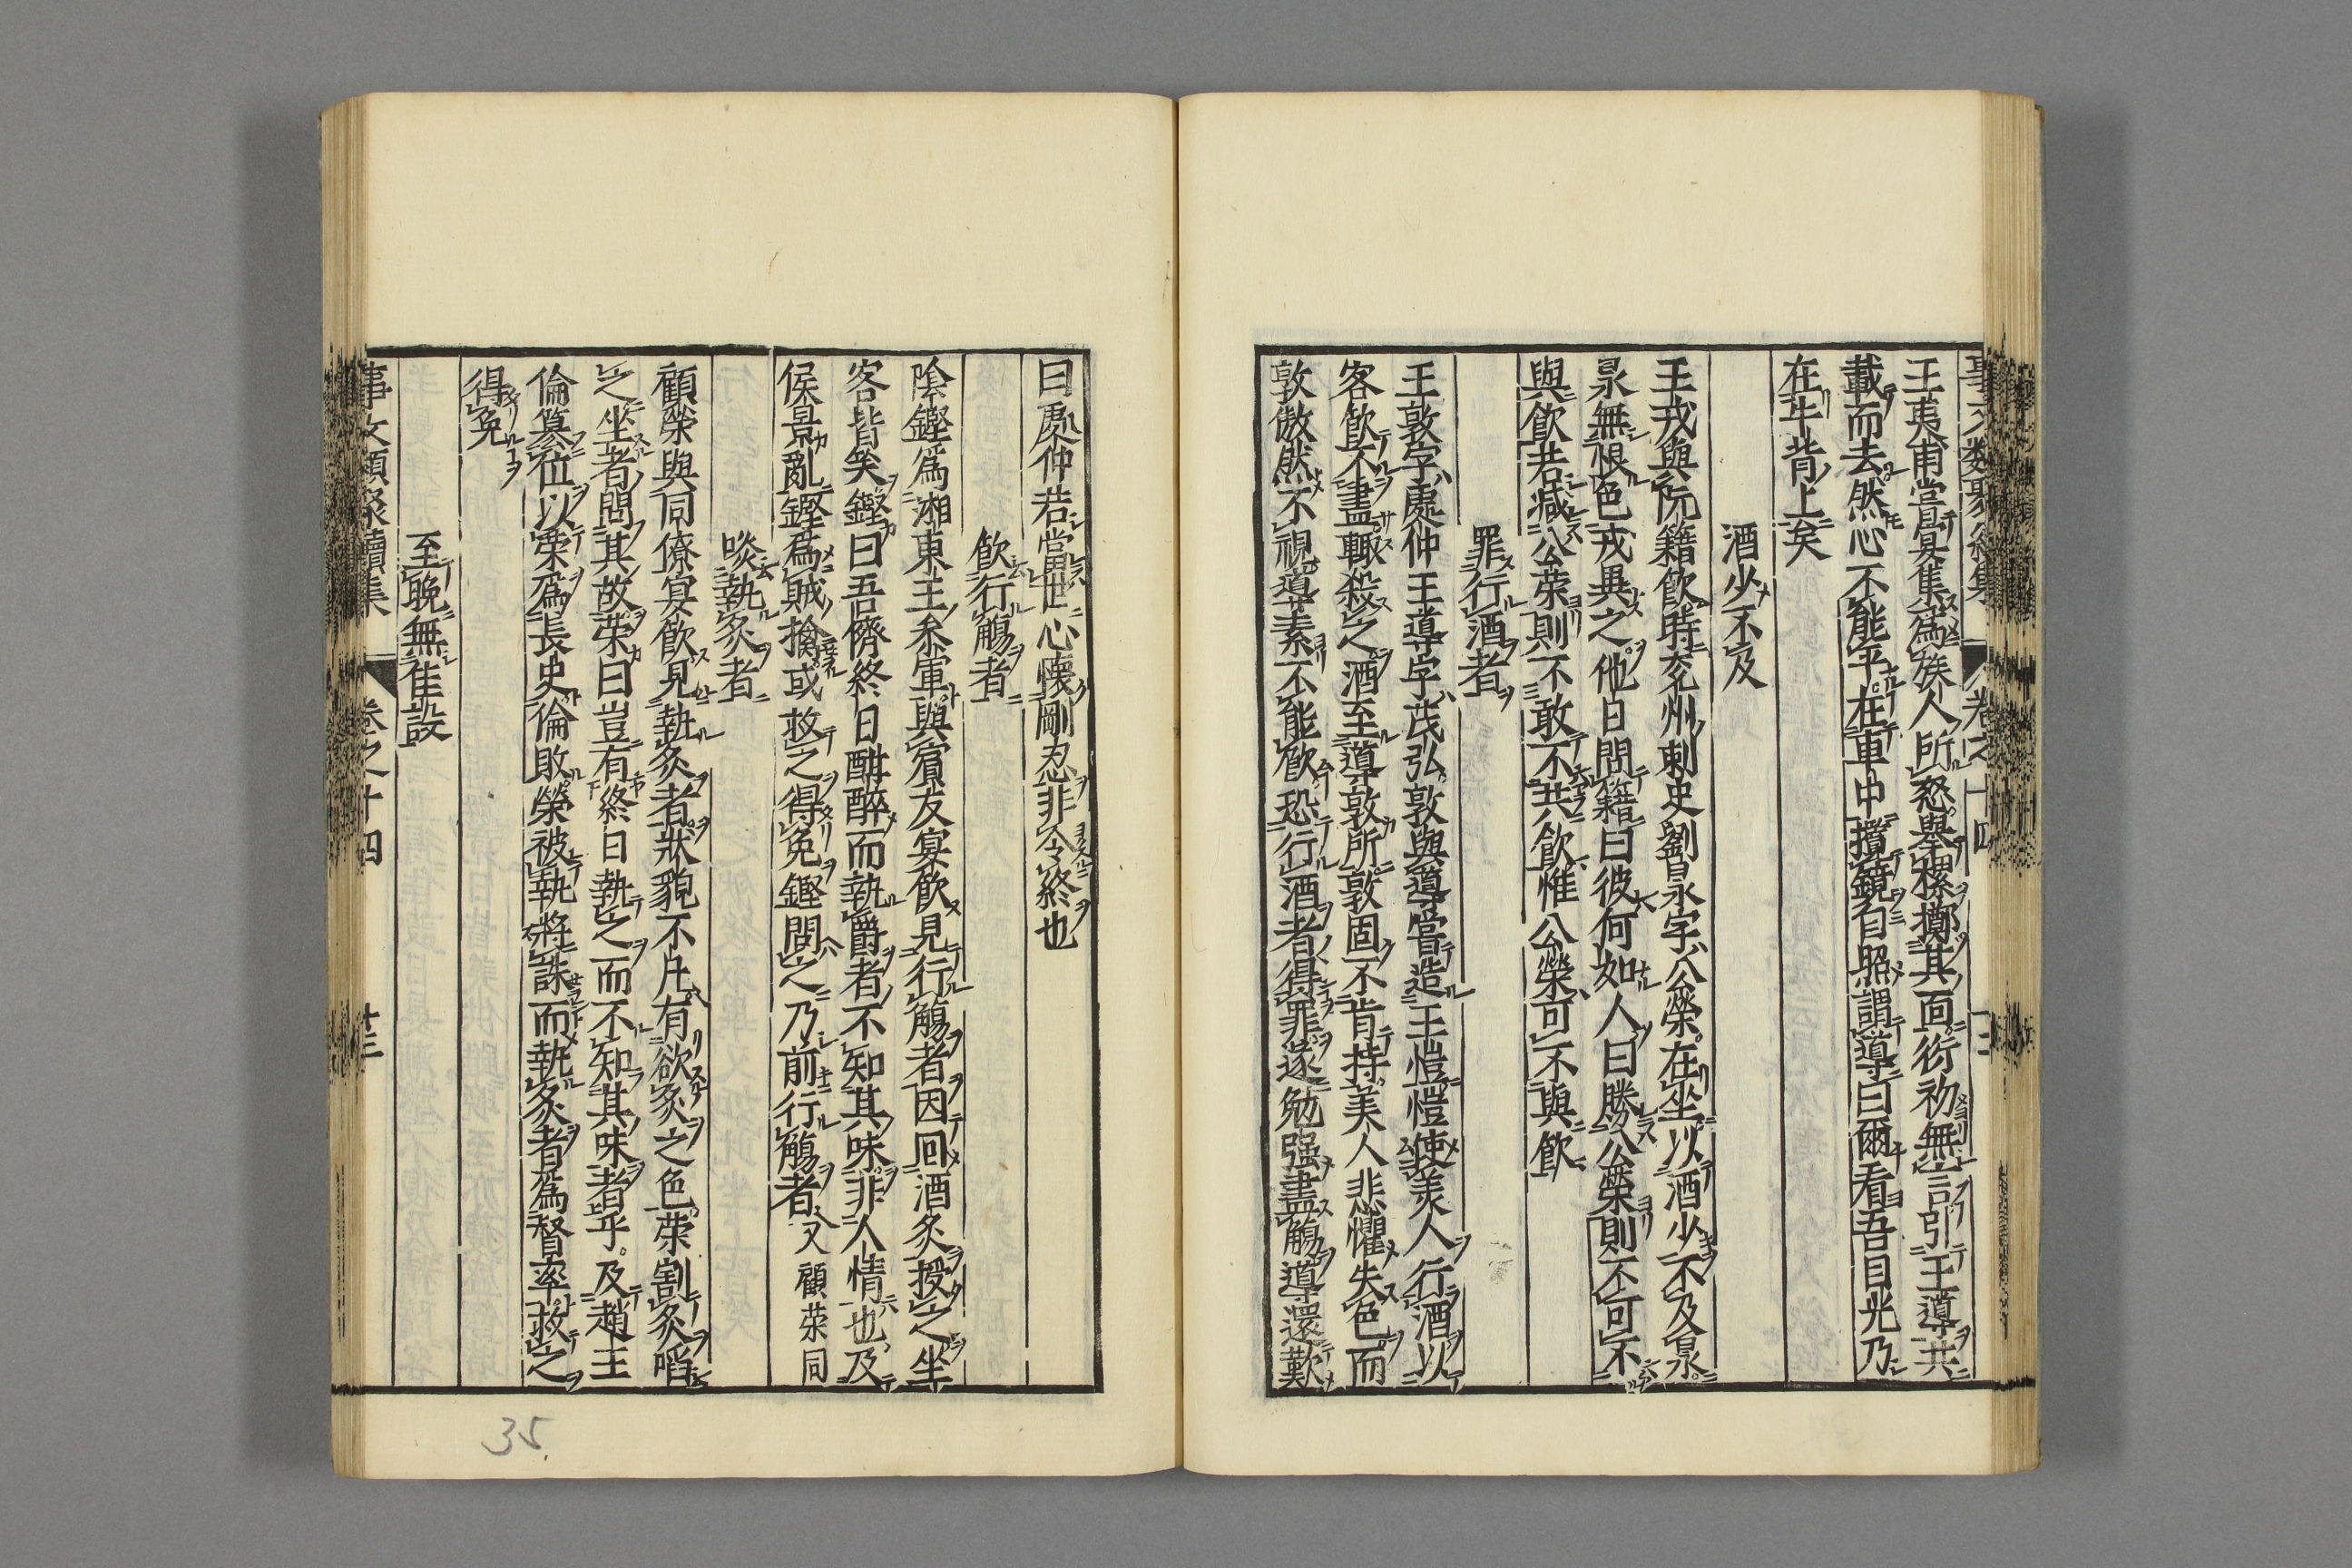 王夷甫嘗宴集為族人所怒舉樏擲其面衍初無言引王導共
載而去然心不能平在車中攬鏡自照謂導曰爾看吾目光乃
在牛背上矣
酒少不及
王戎與阮籍飲時兖州刺史劉昶字公榮在坐以酒少不及昶
昶無恨色戎異之他日問籍曰彼何如人曰勝公榮則不可不
與飲若减公荣則不敢不共飲惟公榮可不與飲
罪行酒者
王敦字處仲王導字茂弘敦與導嘗造王愷愷使美人行酒以
客飲不盡輙殺之酒至導敦所敦固不肯持美人悲懼失色而
敦傲然不視導素不能飲恐行酒者得罪遂勉强盡觴導還歎
曰處仲若當世心懷剛忍非令終也
飲行觴者
陰鏗為湘東王叅軍與賓友宴飲見行觴者因回酒炙授之坐
客皆笑鏗曰吾儕終日酣醉而執爵者不知其味非人情也及
侯景亂鏗為賊擒或救之得免鏗問之乃前行觴者 又顧荣同
啖執炙者
顧榮與同僚宴飲見執炙者狀貌不凡有欲炙之色荣割炙啗
之坐者問其故荣曰豈有終日執之而不知其味者乎及趙王
倫篡位以榮為長史倫敗榮被執將誅而執炙者為督率救之
得免
至晚無佳設
事文類聚續集 卷之十四 廿三
35